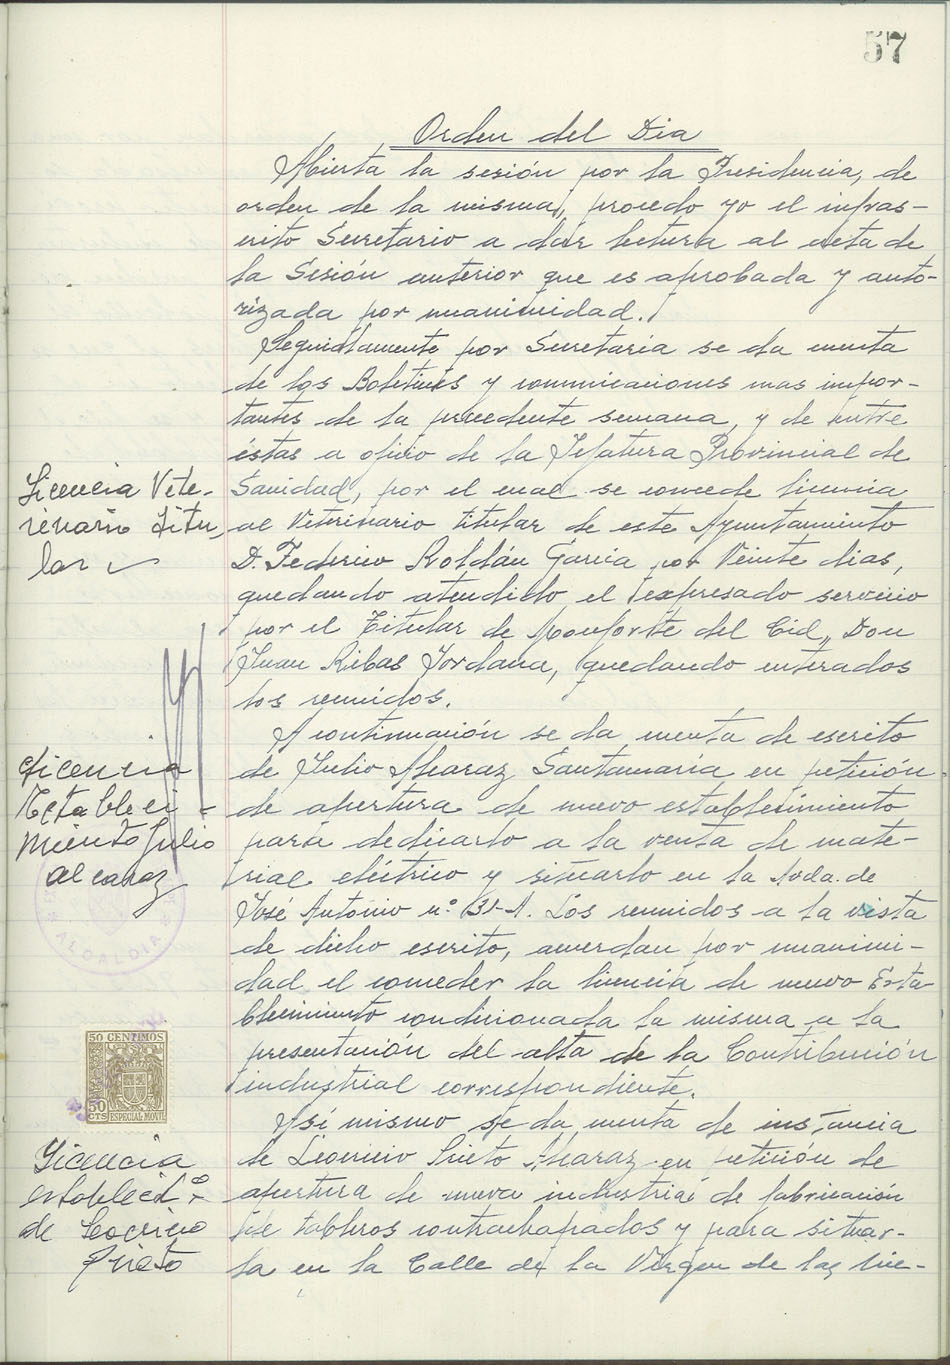 57
Orden del Dia
Abierta la sesión por la Presidencia, de
orden de la misma, procedo yo el infras-
crito Secretario a dar lectura al acta de
la Sesión anterior que es aprobada y auto-
rizada por unanimidad.
Seguidamente por Secretaria se da cuenta
de los Boletines y comunicaciones mas impor-
tantes de la precedente semana, y de entre
éstas a oficio de la Jefatura Provincial de
Licencia Vete-
rinario Titu-
lar
Sanidad, por el cual se concede licencia
al Veterinario titular de este Ayuntamiento
D. Federico Roldán Garcia por Veinte dias,
quedando atendido el expresado servicio
por el Titular de Monforte del Cid, Don
Juan Ribas Jordana, quedando enterados
los reunidos.
A continuación se da cuenta de escrito
Licencia
Estableci-
miento Julio
Alcaraz
de Julio Alcaraz Santamaria en petición
de apertura de nuevo establecimiento
para dedicarlo a la venta de mate-
rial eléctrico y situarlo en la Avda. de
José Antonio nº 31-A. Los reunidos a la vista
de dicho escrito, acuerdan por unanimi-
dad el conceder la licencia de nuevo Esta
blecimiento condicionada la misma a la
presentación del alta de la Contribución
industrial correspondiente.
ALCALDIA
50 CENTIMOS
50 CTS
ESPECIAL MOVIL
Asi mismo se da cuenta de instancia
Licencia
establecid.º
de Leoricio
Prieto
de Leoricio Prieto Alcaraz en petición de
apertura de nueva industria de fabricación
de tableros contrachapados y para situar-
la en la Calle de la Virgen de las Nie-